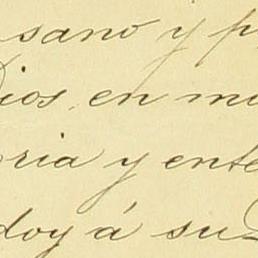 sano y p
Dios, en m
ria y ente
doy á su